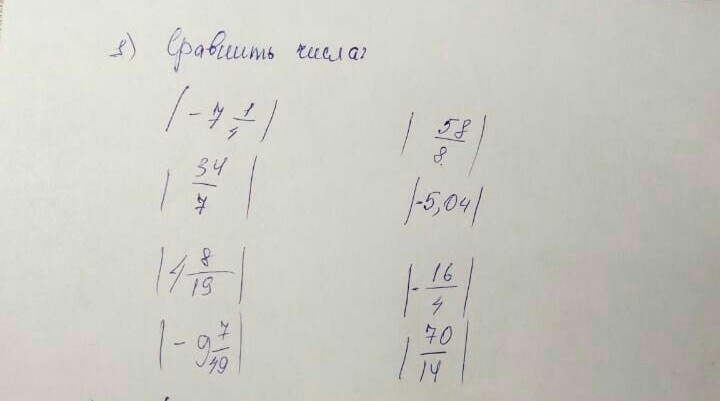 1) Сравнить числа:
|-7 1/4| |58/8|
|34/7| |-5,04|
|4 8/19| |-16/4|
|-9 7/49| |70/14|